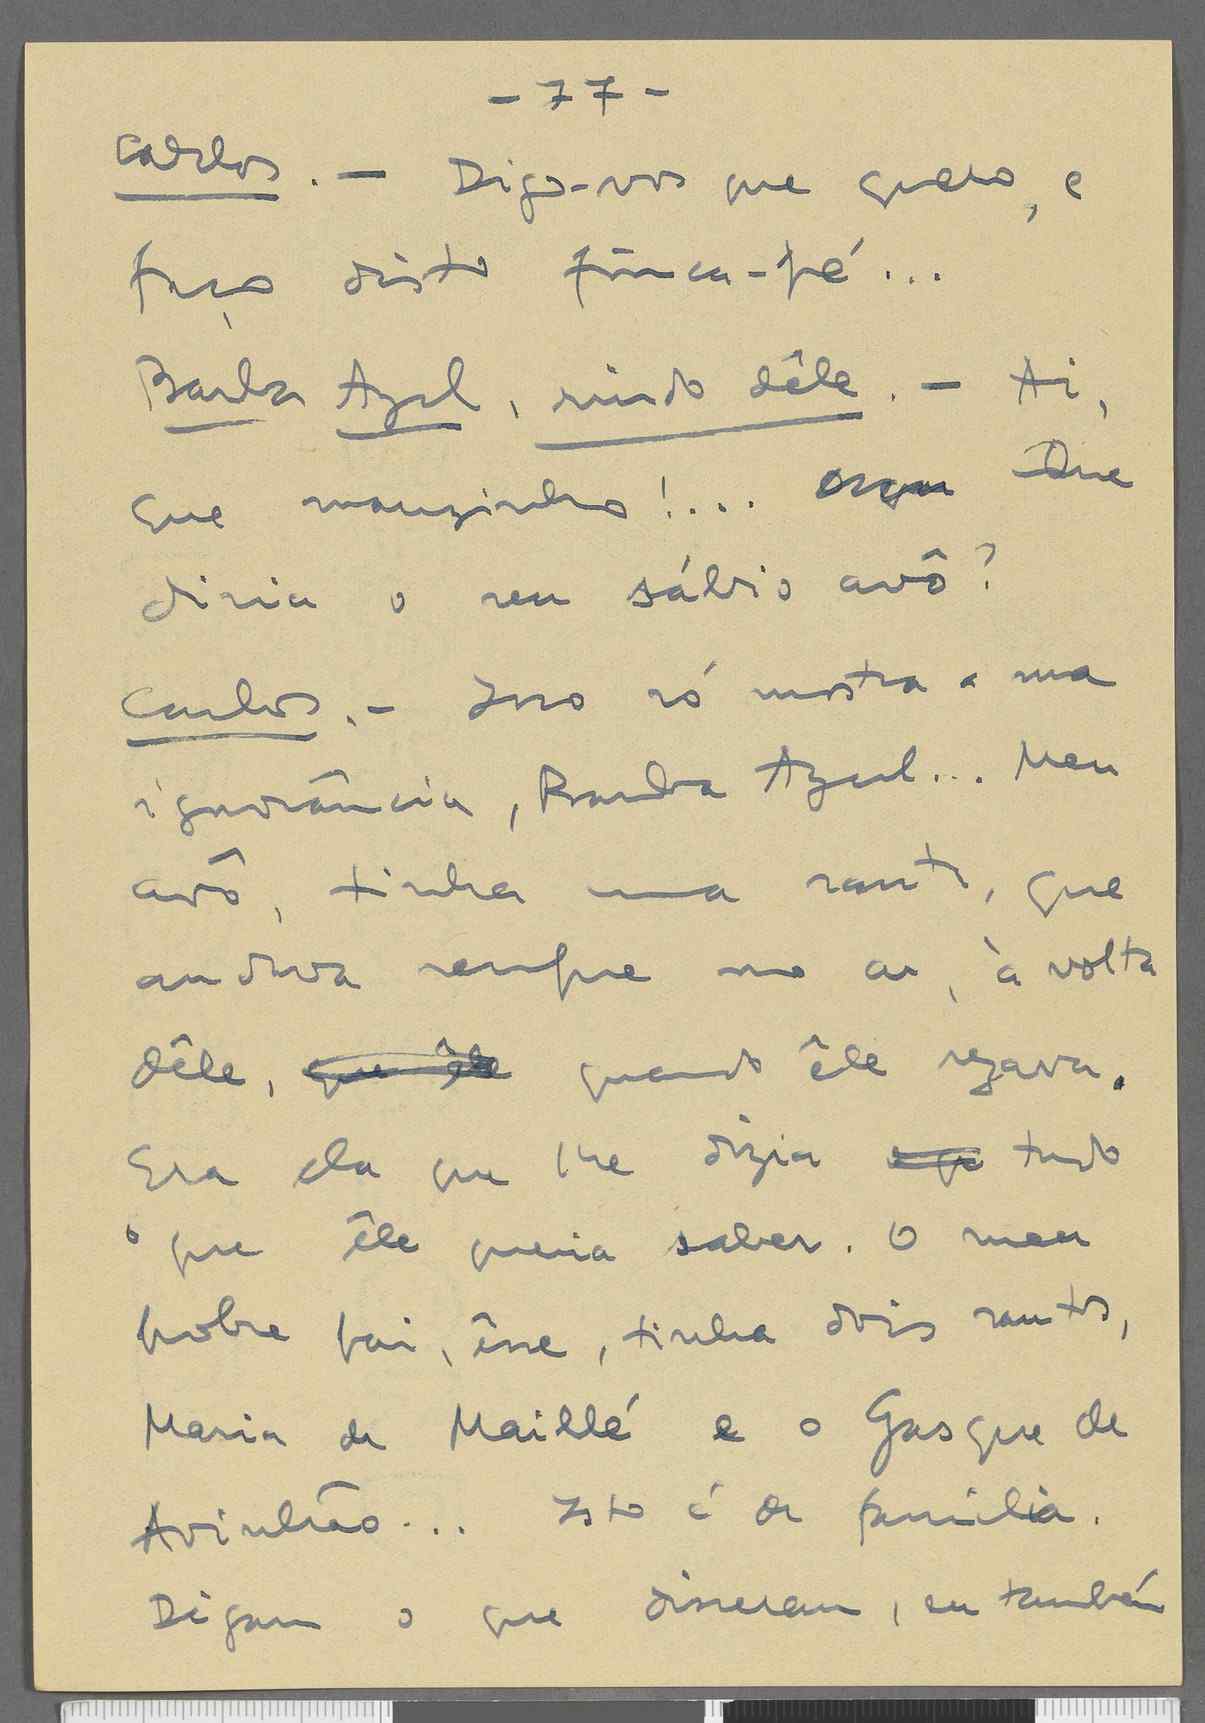 - 77 -
Carlos. - Digo-vos que quero, e
faço disto finca-pé...
Barba Azul, rindo dêle. - Ai,
que mauzinho!... Que
diria o seu sábio avô?
Carlos. - Isso só mostra a sua
ignorância, Barba Azul... Meu
avô, tinha uma santa, que
andava sempre no ar, à volta
dêle, que êle quando êle rezava.
Era ela que lhe dizia o que tudo
o que êle queria saber. O meu
pobre pai, êsse, tinha dois santos,
Maria de Maillé e o Gasque de
Avinhão... Isto é de família.
Digam o que disseram, eu também